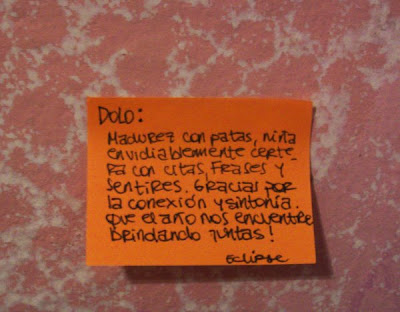 Dolo:
Madurez con patas, niña
envidiablemente certe-
ra con citas, frases y
sentires. Gracias por
la conexión y sintonía.
Que el año nos encuentre
brindando juntas!
Eclipse